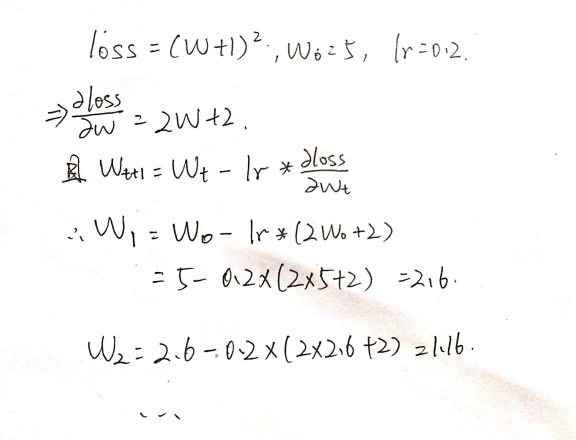 loss = (w+1)², w₀=5, lr=0.2.
⇒ ∂loss/∂w = 2w+2.
且 Wₜ₊₁ = Wₜ - lr * ∂loss/∂wₜ
∴ W₁ = W₀ - lr * (2W₀+2)
= 5 - 0.2×(2×5+2) = 2.6.
W₂ = 2.6 - 0.2×(2×2.6+2) = 1.16.
...